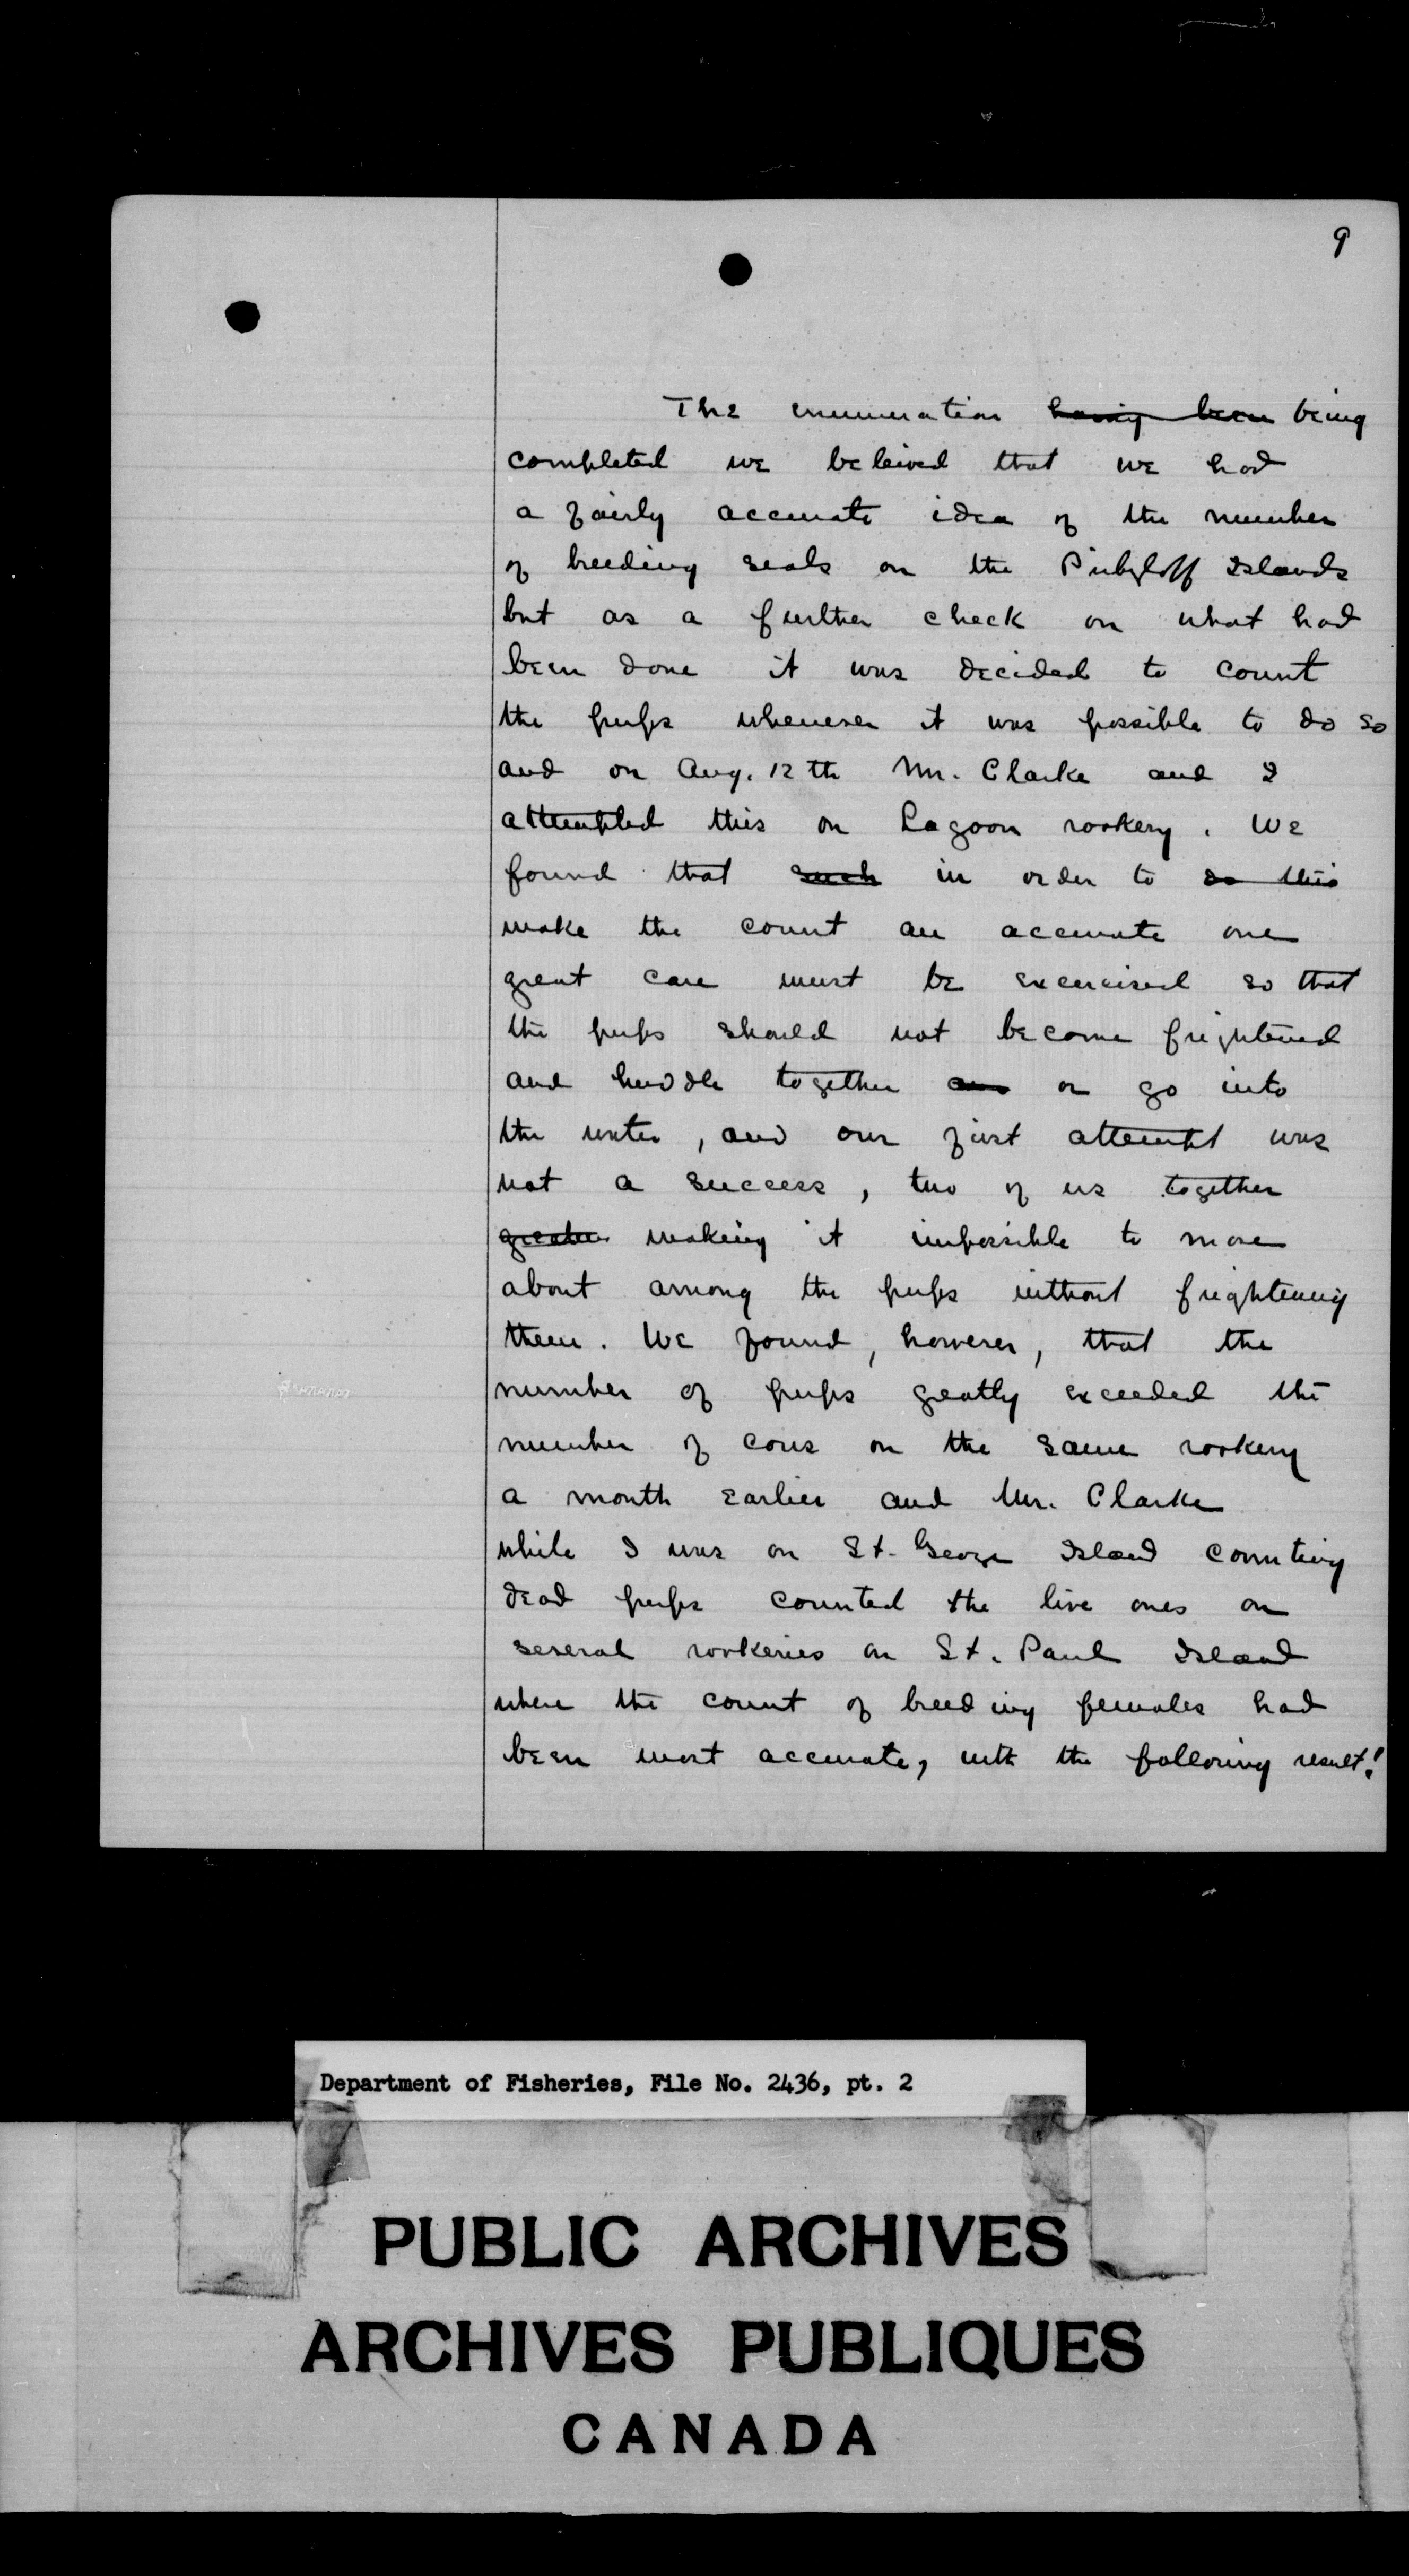 9
The enumeration having been being
completed we beleived that we had
a fairly accurate idea of the number
of breeding seals on the Pribyloff Islands
but as a further check on what had
been done it was decided to count
the pups whenever it was possible to do so
and on Aug. 12th Mr. Clarke and I
attempted this on Lagoon rookery. We
found that such in order to do this
make the count an accurate one
great care must be excercised so that
the pups should not become frightened
and huddle together or go into
the water, and our first attempt was
not a success, two of us together
greater making it impossible to move
about among the pups without frightening
them. We found, however, that the
number of pups greatly exceeded the
number of cows on the same rookery
a month earlier and Mr. Clarke
while I was on St. George Island counting
dead pups counted the live ones on
several rookeries on St. Paul Island
where the count of breeding females had
been most accurate, with the following result:
Department of Fisheries, File No. 2436, pt. 2
PUBLIC ARCHIVES
ARCHIVES PUBLIQUES
CANADA